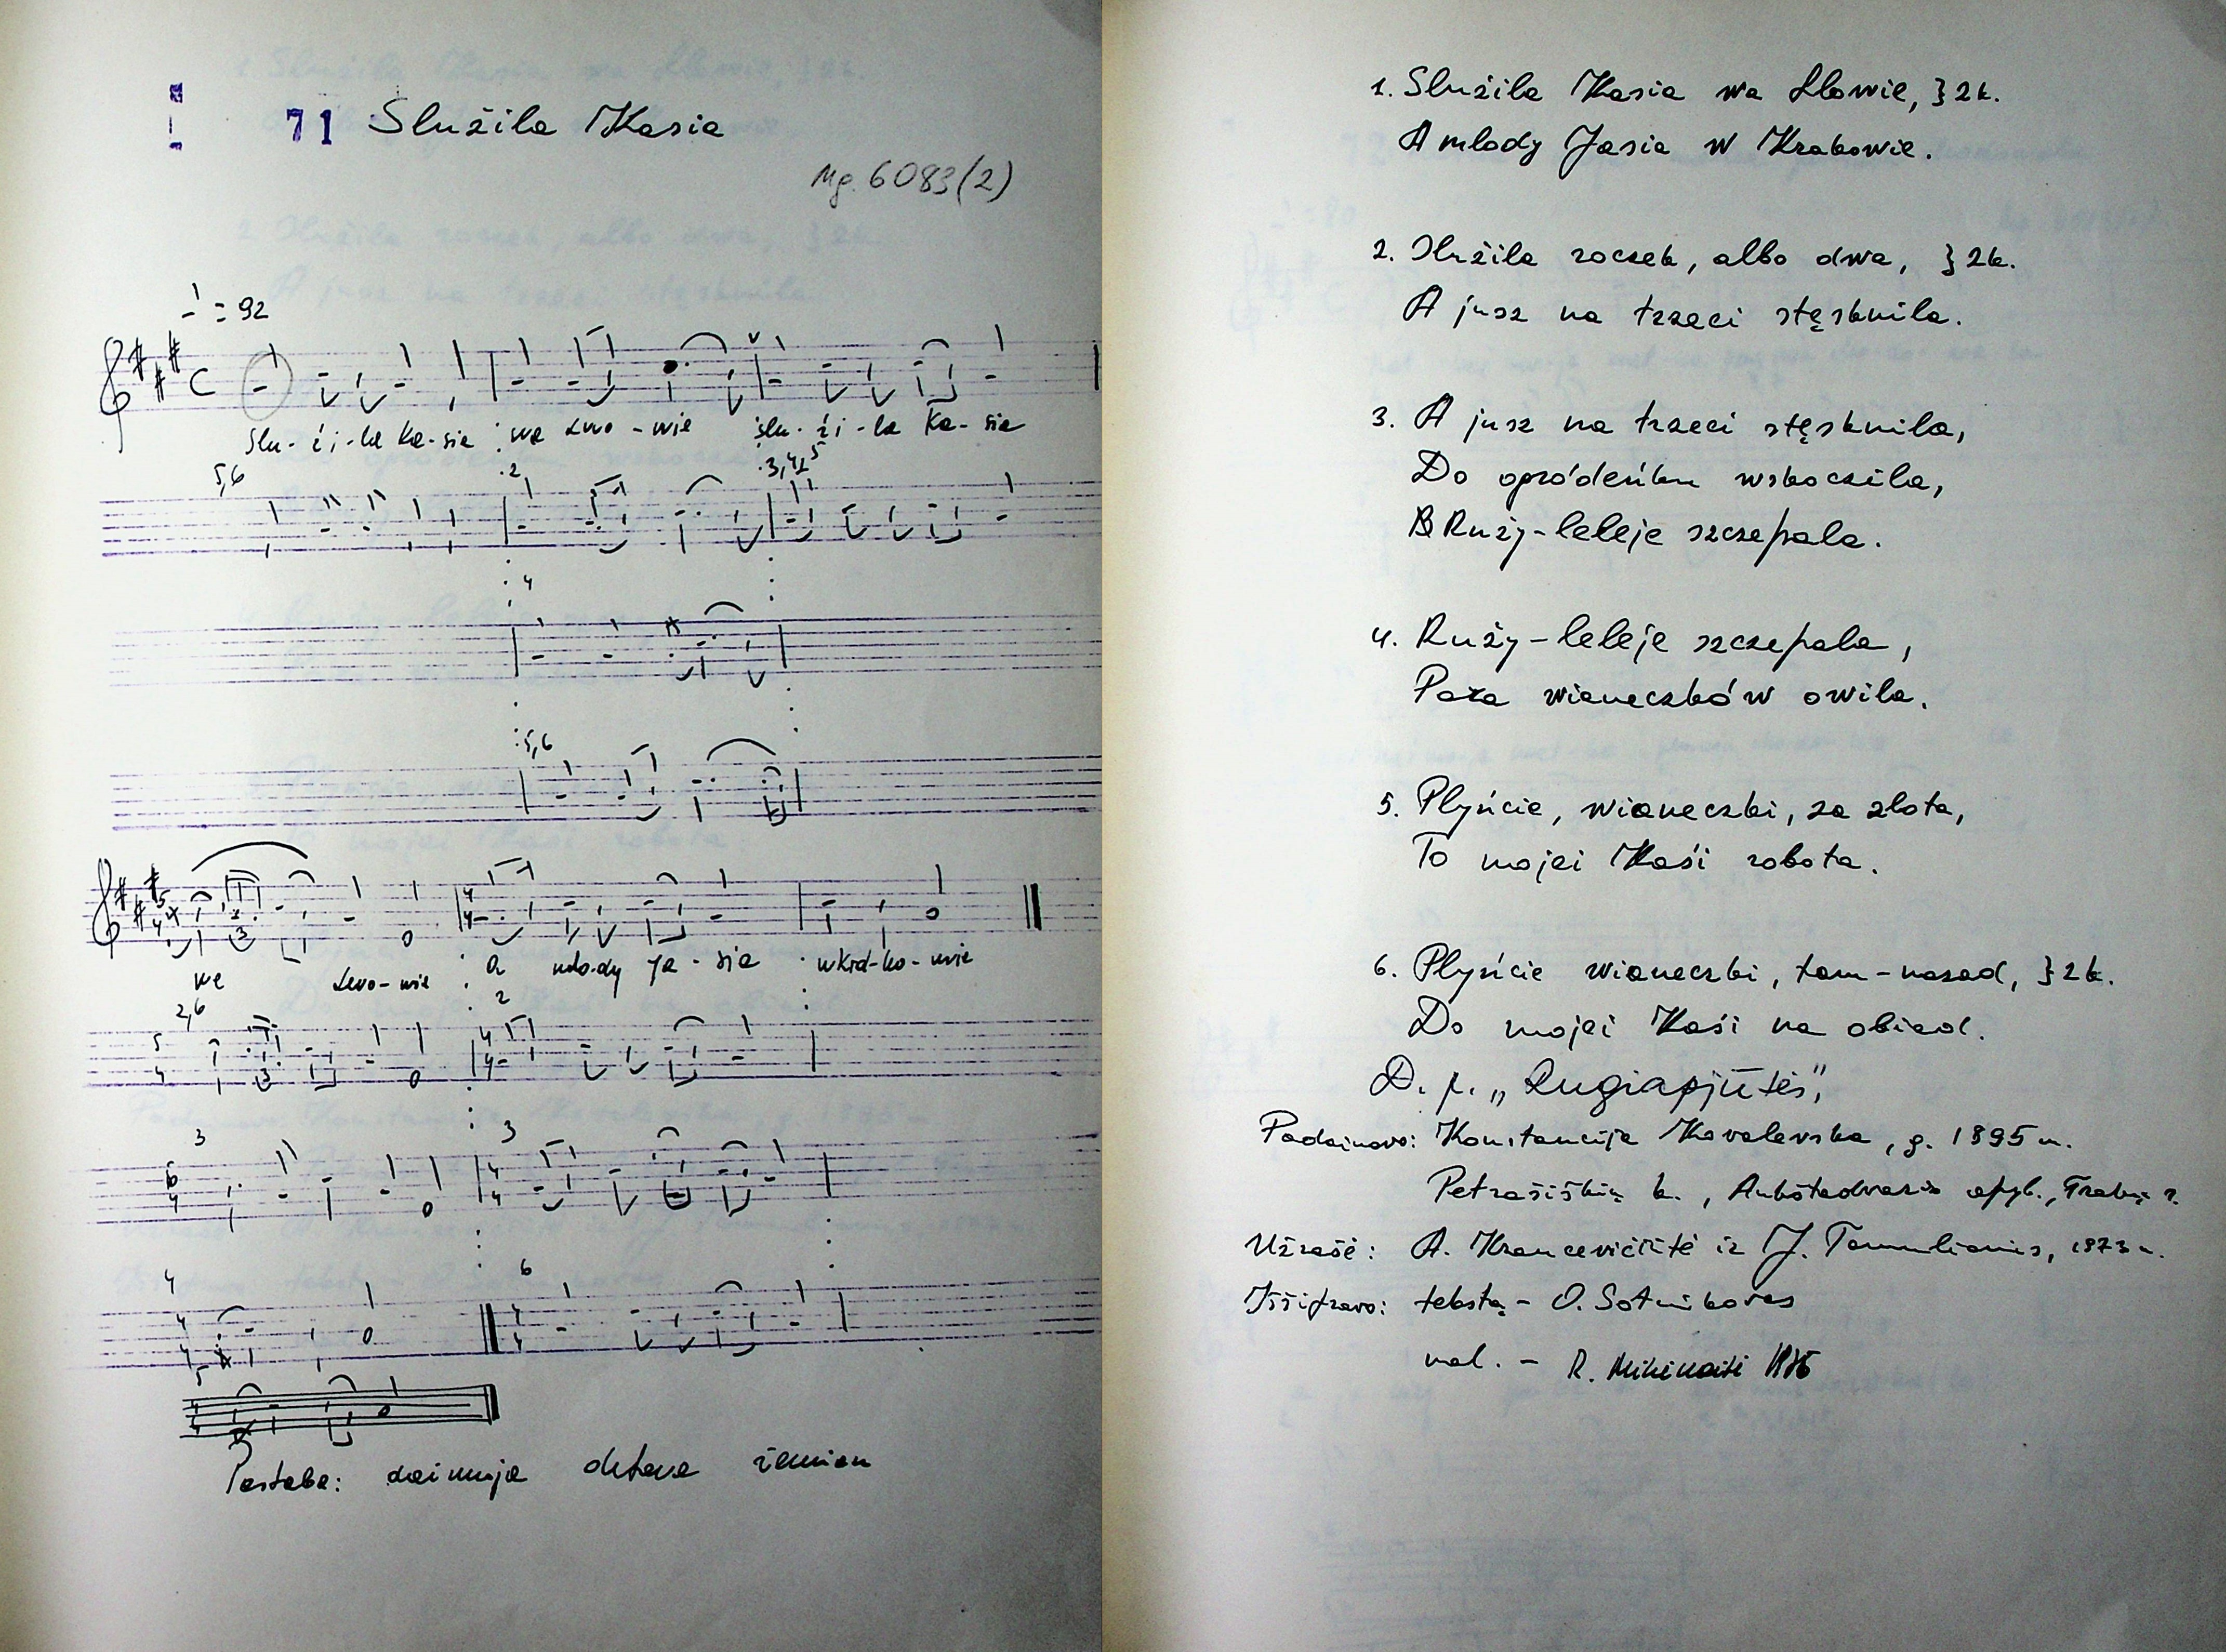 71 Služila Kasia
Mg. 6083(2)
= 92
Slu-ži-la Ka-sia we Lwo-wie slu-ži-la Ka-sia
5,6 2 3,4,5
4
5,6
we Lwo-wie a mlo-dy Ja-sia w Kra-ko-wie
2,6 2
3 3
4 6
5
Pastaba: dainuja oktava žemiau
1. Služila Kasia wa Llowie, } 2k.
A mlody Jasia w Krakowie.
2. Služila roczek, albo dwa, } 2k.
A jusz na trzeci stęsknila.
3. A jusz na trzeci stęsknila,
Do ogródeńku wskoczila,
Ružy-leleje szczepala.
4. Ružy-leleje szczepala,
Para wianeczków owila.
5. Plyńcie, wianeczki, za zlota,
To mojei Kaśi robota.
6. Plyńcie wianeczki, tam-nazad, } 2k.
Do mojei Kaśi na obiad.
D. p. „Rugiapjūtės"
Padainavo: Konstancija Kavalevska, g. 1895 m.
Petrašiškių k., Aukštadvario apyl., Trakų r.
Užrašė: A. Krancevičiūtė ir J. 1973 m.
Iššifravo: tekstą - O. Sotnikovas
mel. -